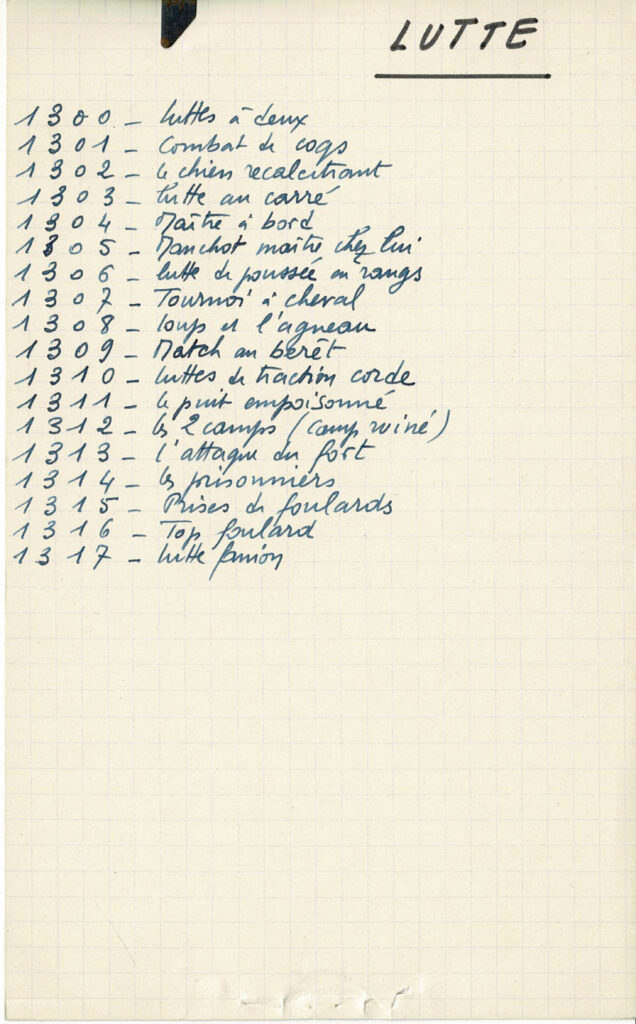 LUTTE
1300 - luttes à deux
1301 - Combat de coqs
1302 - le chien recalcitrant
1303 - lutte au carré
1304 - Maître à bord
1305 - Manchot maître chez lui
1306 - lutte de poussée en rangs
1307 - Tournoi à cheval
1308 - loup et l'agneau
1309 - Match au berêt
1310 - luttes de traction corde
1311 - le puit empoisonné
1312 - les 2 camps (camp ruiné)
1313 - l'attaque du fort
1314 - les prisonniers
1315 - Prises de foulards
1316 - Top foulard
1317 - lutte fanion